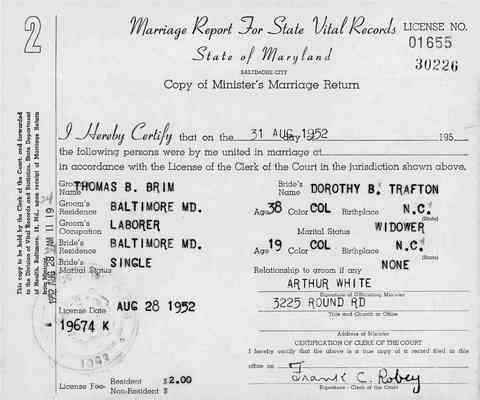 2
Marriage Report For State Vital Records
LICENSE NO.
01655
30226
State of Maryland
BALTIMORE CITY
Copy of Minister's Marriage Return
This copy to be held by the Clerk of the Court and forwarded
to the Division of Vital Records and Statistics, State Department
of Health, Baltimore, 18, Md., upon receipt of Marriage Return
from Minister
1952 AUG 28 AM 11 19
I Hereby Certify that on the 31 AUG 1952 day of 195
the following persons were by me united in marriage at
in accordance with the License of the Clerk of the Court in the jurisdiction shown above.
Groom's Name THOMAS B. BRIM Bride's Name DOROTHY B. TRAFTON
Groom's Residence BALTIMORE MD. Age 38 Color COL Birthplace N.C. (State)
Groom's Occupation LABORER Marital Status WIDOWER
Bride's Residence BALTIMORE MD. Age 19 Color COL Birthplace N.C. (State)
Bride's Marital Status SINGLE Relationship to groom if any NONE
ARTHUR WHITE
Signature of Officiating Minister
License Date AUG 28 1952 3225 ROUND RD
Title and Church or Office
19674 K
Address of Minister
CERTIFICATION OF CLERK OF THE COURT
I hereby certify that the above is a true copy of a record filed in this
office on
Frank C. Robey
License Fee- Resident $2.00
Non-Resident $
Signature - Clerk of the Court